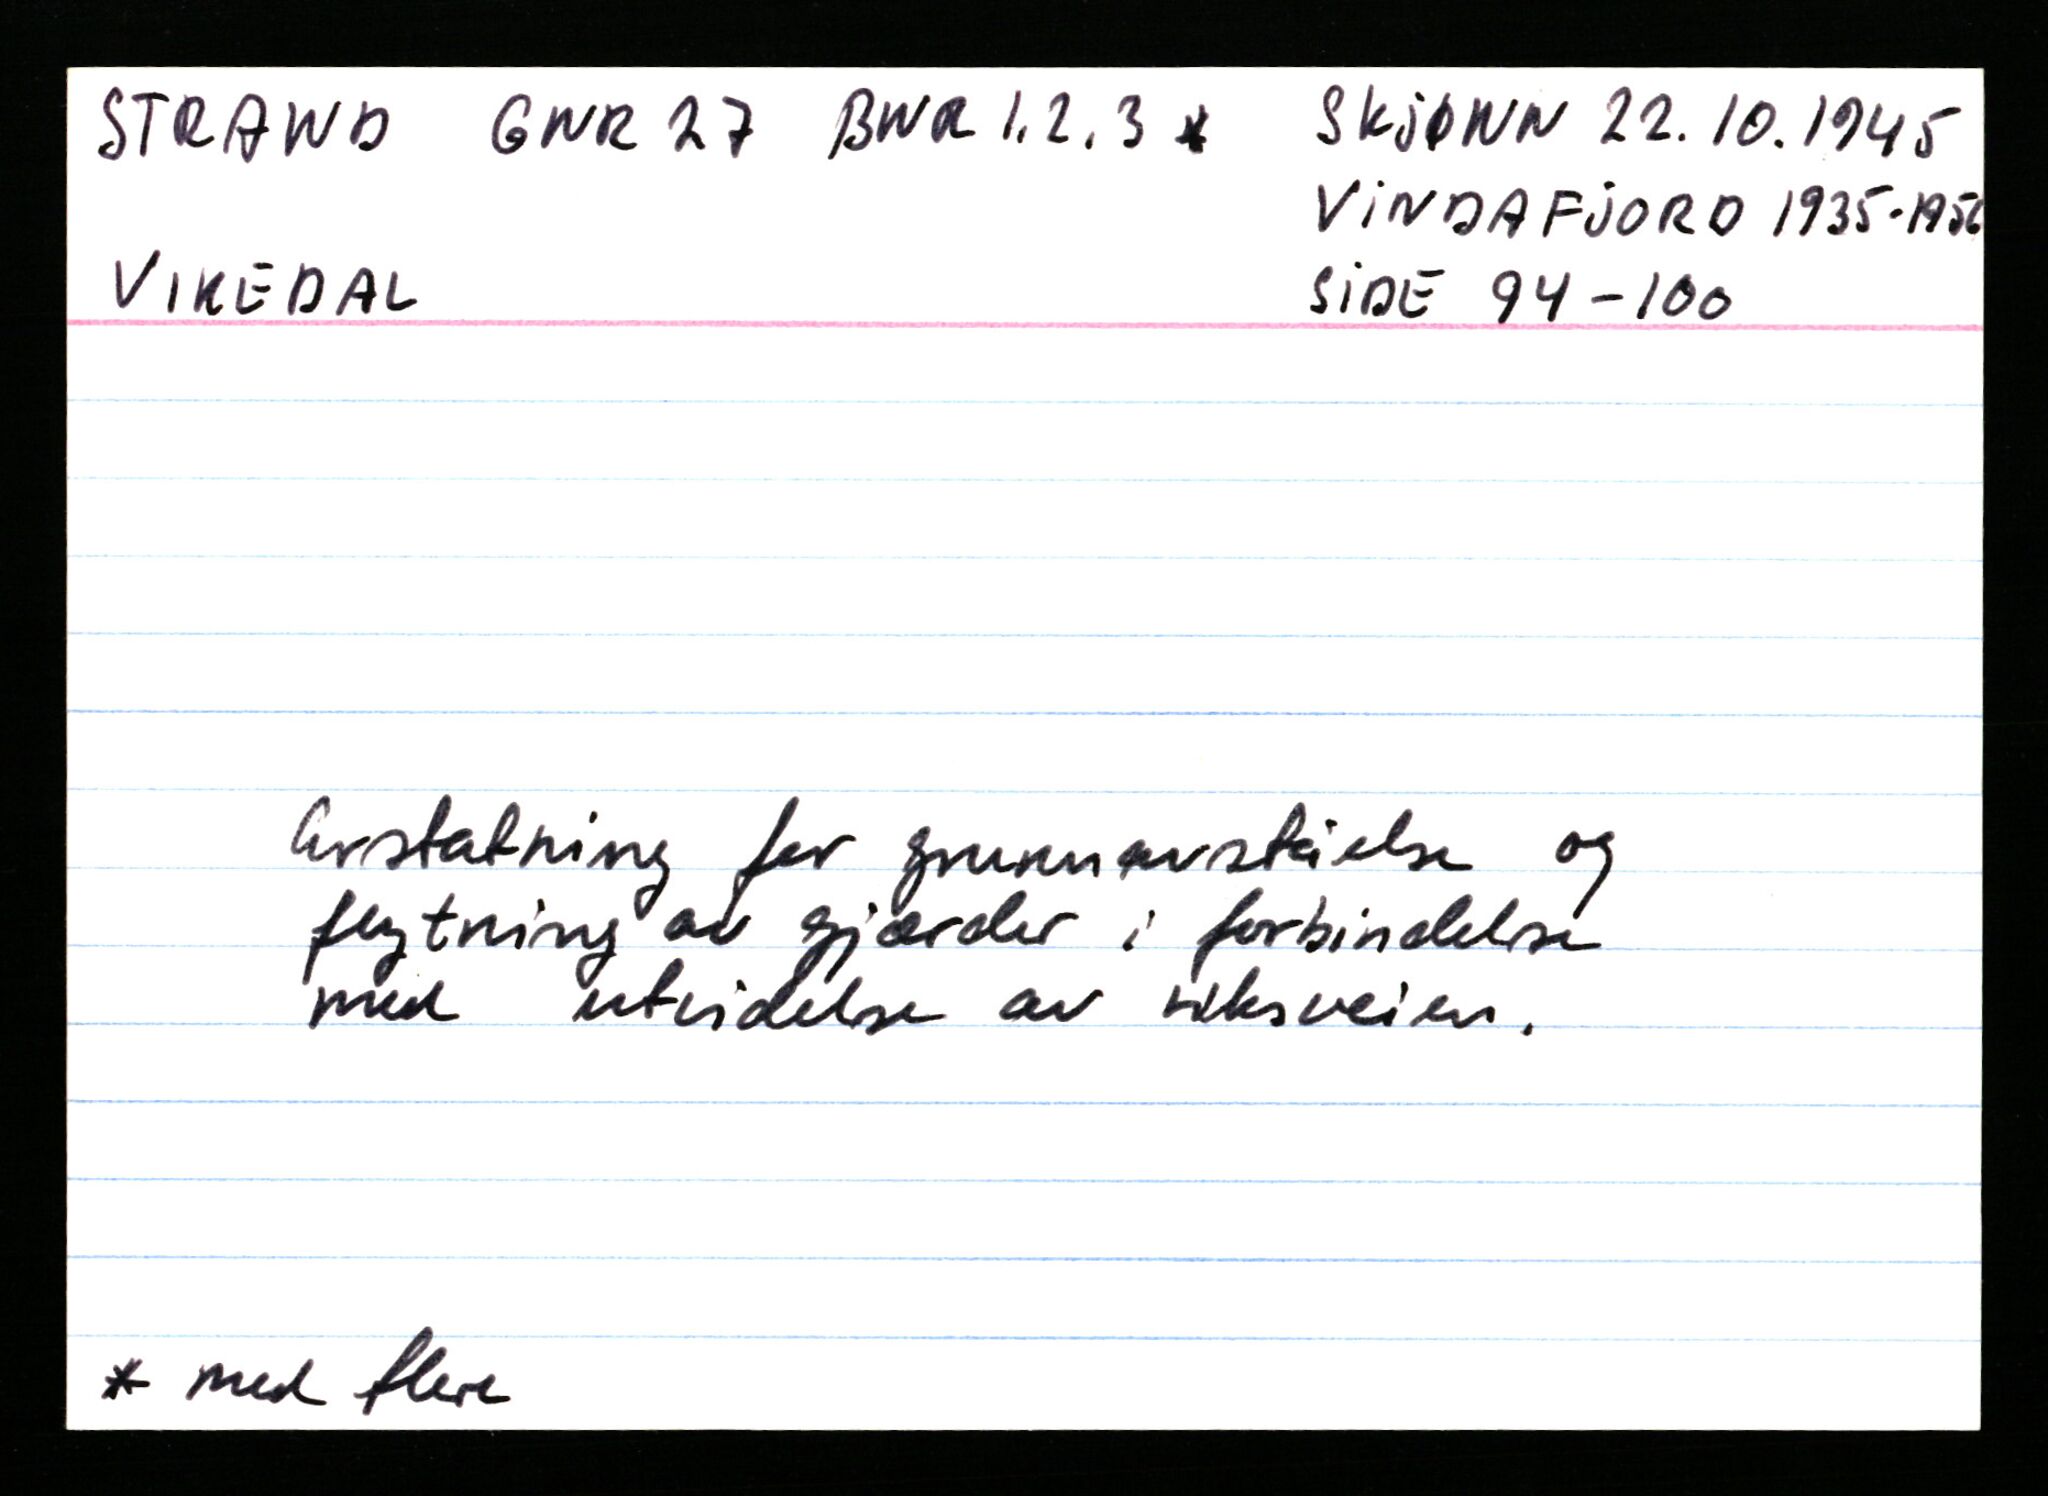 STRAND GNR 27 BNR 1.2.3 * SKJØNN 22.10.1945
VINDAFJORD 1935-1956
VIKEDAL SIDE 94-100
Erstatning for grunnavståelse og
flytning av gjærder i forbindelse
med utvidelse av riksveien.
* med flere